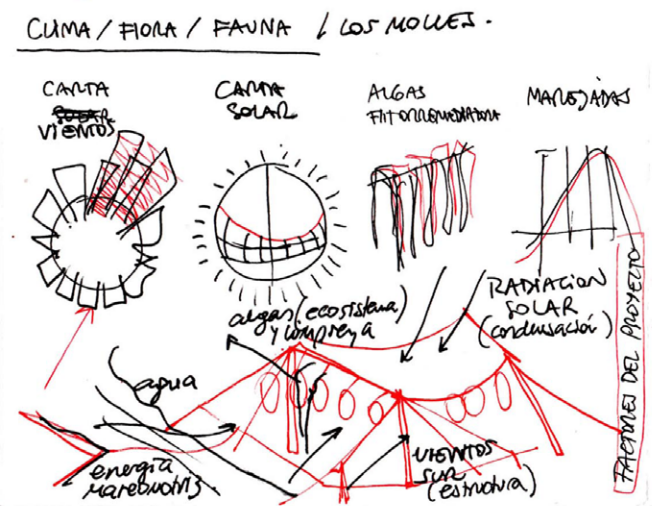 CLIMA / FLORA / FAUNA / LOS MOLLES.
CARTA
SOLAR
VIENTOS
CARTA
SOLAR
ALGAS
FITORREMEDIADORA
MAREJADAS
algas (ecosistema)
y limpieza
RADIACION
SOLAR
(condensación)
agua
energía
mareomotriz
VIENTOS
SUR
(estructura)
FACTORES DEL PROYECTO